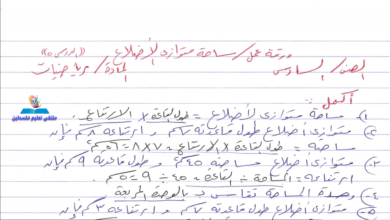 ورقة عمل / مساحة متوازي الأضلاع
الصف / السادس المادة / رياضيات
ملتقى تعليم فلسطين
أكمل :-
١) مساحة متوازي الأضلاع = طول القاعدة × الارتفاع
٢) متوازي أضلاع طول قاعدته ٧سم و ارتفاعه ٨سم فإن
مساحته = طول القاعدة × الارتفاع = ٧×٨ = ٥٦سم٢
٣) متوازي أضلاع مساحته ٤٥سم٢ و طول قاعدته ٩سم فإن
ارتفاعه = المساحة ÷ القاعدة = ٤٥ ÷ ٩ = ٥سم
٤) وحدة المساحة تقاس بـ بالوحدة المربعة
متوازي أضلاع طول قاعدته ٧سم و ارتفاعه ٣سم فإن